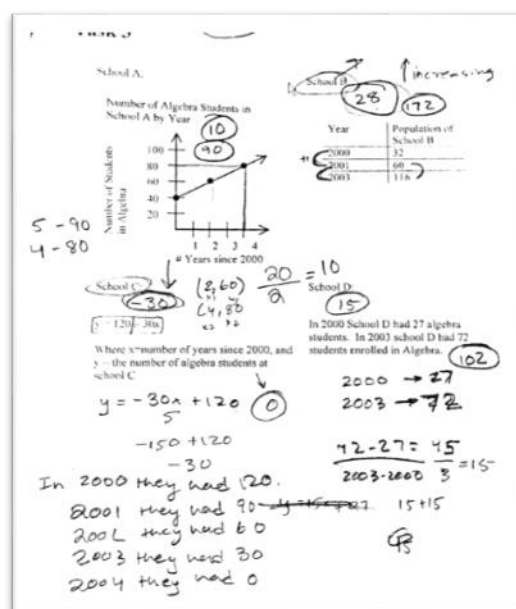 School A:
Number of Algebra Students in
School A by Year
10
90
Number of Students
in Algebra
100
80
60
40
20
1 2 3 4
# Years since 2000
5 - 90
4 - 80
School B:
28
172
↑ increasing
Year Population of
School B
2000 32
+1
2001 60
2003 116
School C:
-30
y = 120 - 30x
(2,60)
(4,80)
x2 y2
20/2 = 10
Where x=number of years since 2000, and
y = the number of algebra students at
school C
y = -30x + 120
5
0
-150 + 120
-30
In 2000 they had 120.
2001 they had 90
2002 they had 60
2003 they had 30
2004 they had 0
School D:
15
In 2000 School D had 27 algebra
students. In 2003 school D had 72
students enrolled in Algebra.
102
2000 → 27
2003 → 72
72-27 = 45
2003-2000 3 = 15
15+15